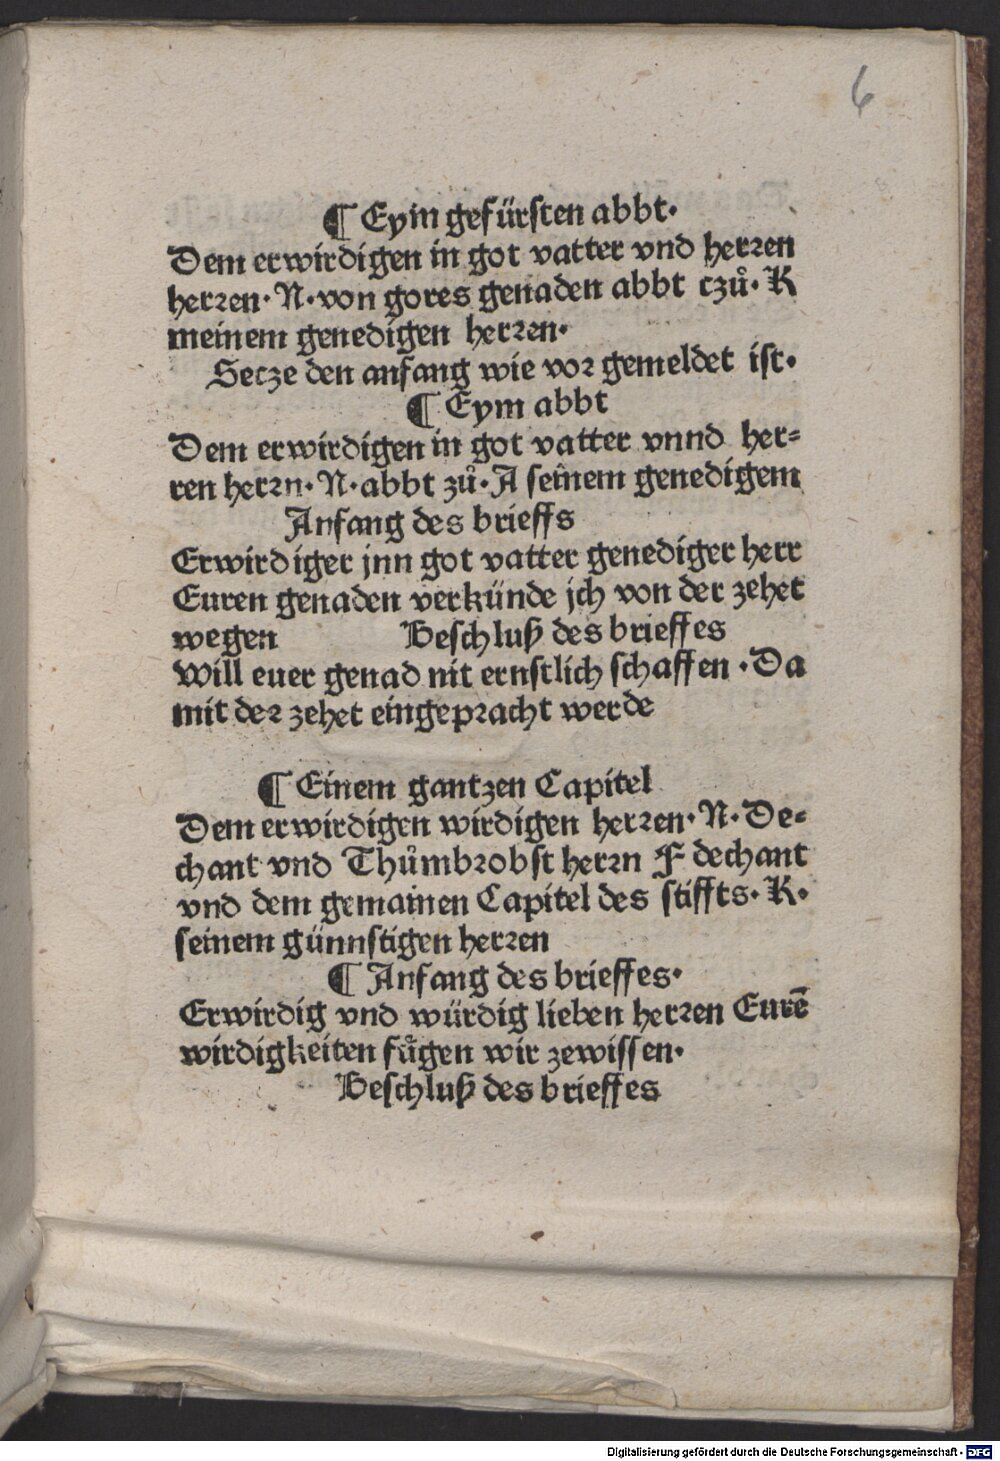 6
¶ Eym gefürsten abbt·
Dem erwirdigen in got vatter vnd herꝛen
herꝛen· N· von gotes genaden abbt czuͦ· K
meinem genedigen herꝛen·
Secze den anfang wie voꝛ gemeldet ist·
¶ Eym abbt
Dem erwirdigen in got vatter vnnd her⸗
ren herꝛn· N· abbt zuͦ· A seinem genedigem
Anfang des brieffs
Erwirdiger jnn got vatter genediger herr
Euren genaden verkünde jch von der zehet
wegen Beschluß des brieffes
Will euer genad nit ernstlich schaffen · Da
mit deꝛ zehet eingepꝛacht werde
¶ Einem gantzen Capitel
Dem erwirdigen wirdigen herꝛen· N· De⸗
chant vnd Thuͦmbꝛobst herꝛn F dechant
vnd dem gemainen Capitel des stiffts· K·
seinem günnstigen herꝛen
¶ Anfang des brieffes·
Erwirdig vnd würdig lieben herꝛen Eurē
wirdigkeiten fuͤgen wir zewissen·
Beschluß des brieffes
Digitalisierung gefördert durch die Deutsche Forschungsgemeinschaft - DFG